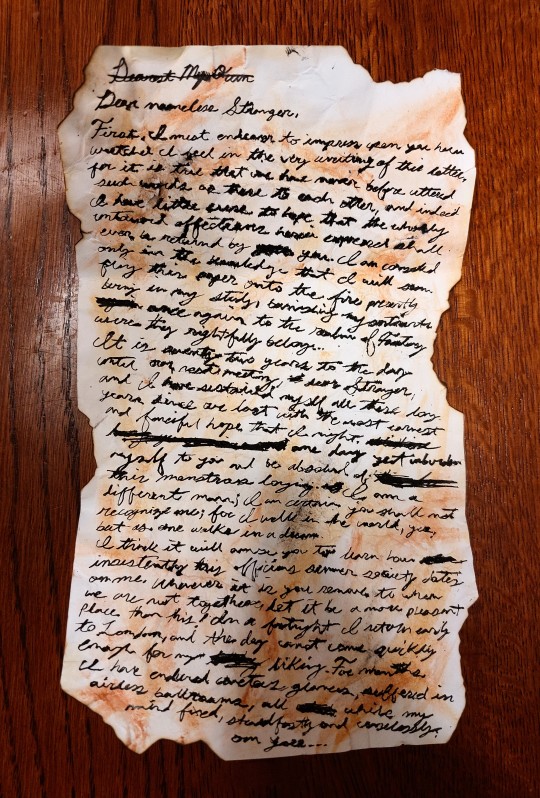 Dearest My Own
Dear nameless Stranger,
First, I must endeavor to impress upon you how
wretched I feel in the very writing of this letter,
for it is true that we have never before uttered
such words as these to each other, and indeed
I have little sense to hope that the wholly
untoward affections herein expressed shall
ever be returned by you. I am consoled
only in the knowledge that I will soon
fling this paper onto the fire presently
in my study, banishing my
once again to the realm of fantasy
where they rightfully belong.
It is seventy two years to the day
until our next meeting, dear Stranger,
and I have sustained myself all these long
years since we last with the most earnest
and fanciful hope that I might,
one day yet
myself to you and be absolved of
this monstrous longing. I am a
different man; I am certain you shall not
recognize me; for I walk in the world, yes,
but as one walks in a dream.
I think it will amuse you to learn how
insistently this officious summer society
on me. Wherever it is you remove to when
we are not together, let it be a more pleasant
place than this! In a fortnight I return early
to London, and the day cannot come quickly
enough for my liking. For months
I have endured covetous glances, suffered in
airless ballrooms, all while my
mind fixed, steadfastly and ceaselessly,
on you...